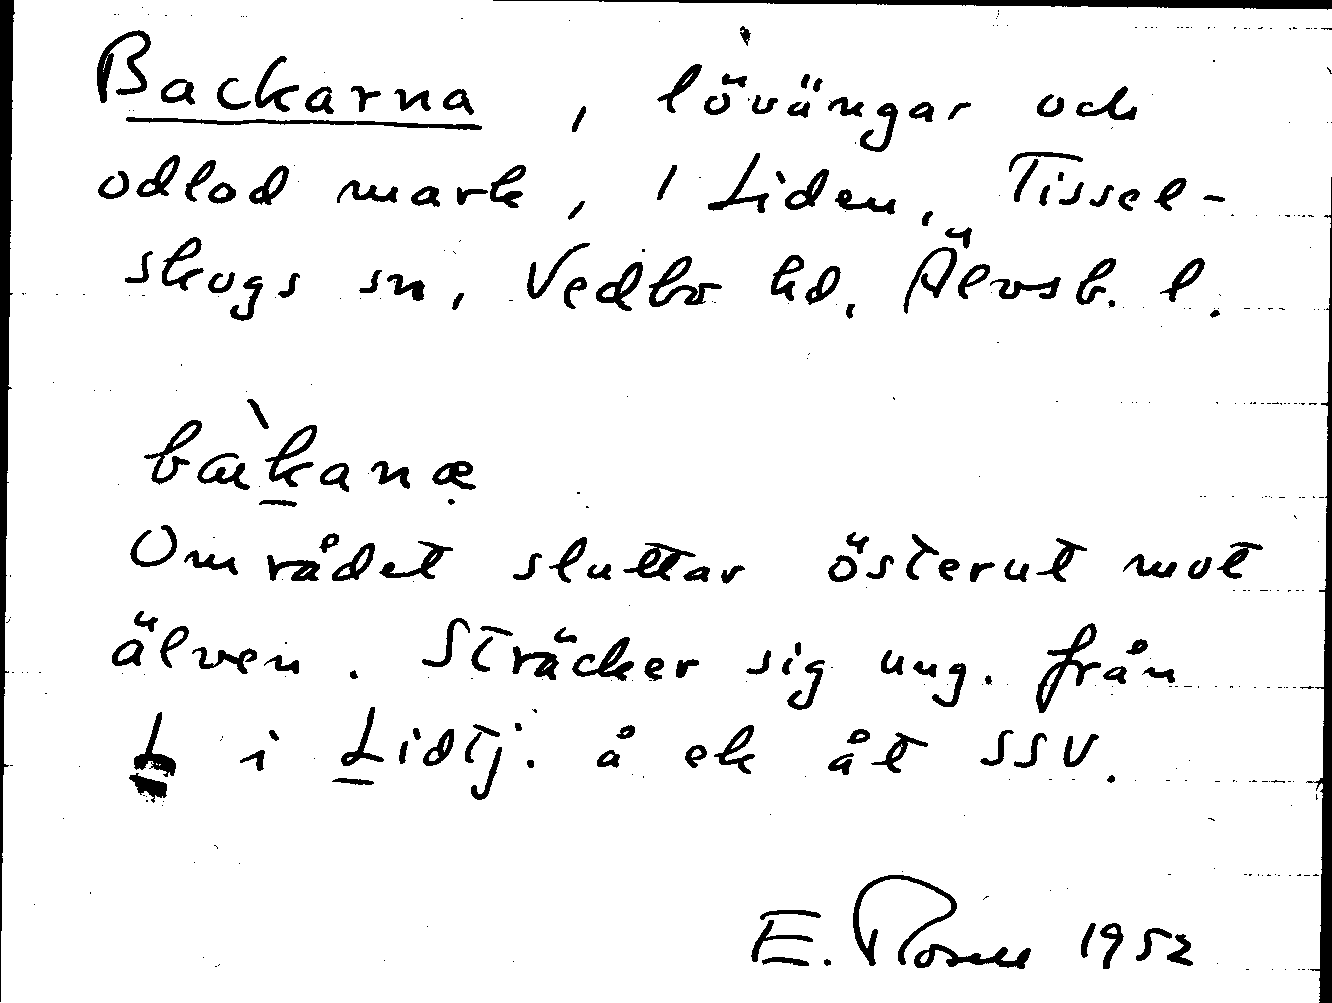 Backarna, lövängar och
odlod mark, 1 Liden, Tissel-
skogs sn, Vedbo hd, Älvsb. l.
bàkanæ
Området sluttar österut mot
älven. Sträcker sig ung. från
L i Lidtj. å ek åt SSV.
E. Rosell 1952